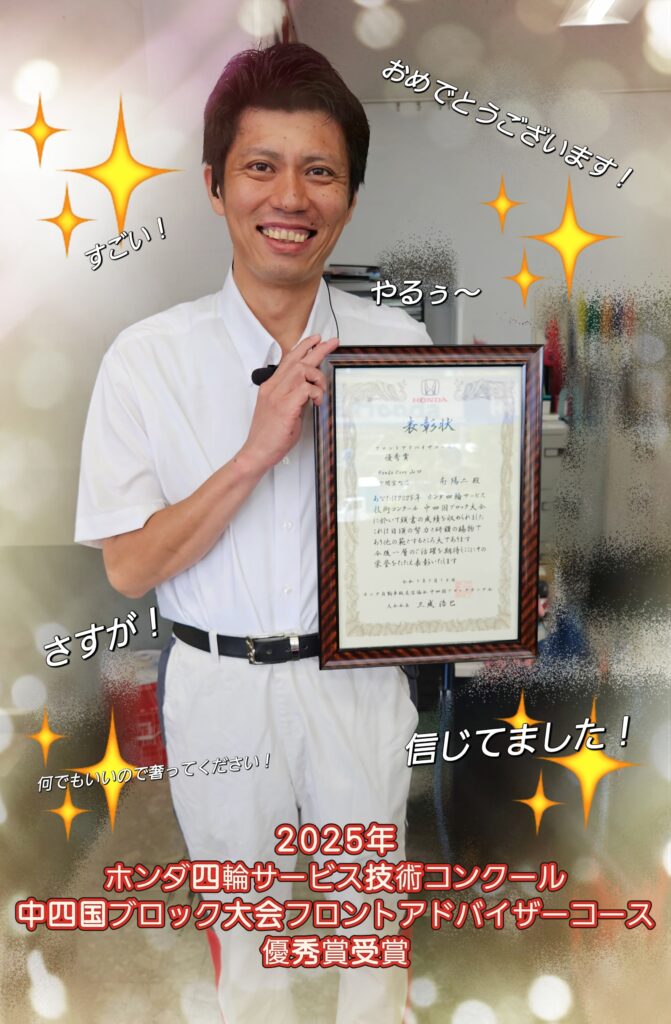 おめでとうございます！
すごい！
やるぅ〜
HONDA
表彰状
フロントアドバイザーコース
優秀賞
Honda Cars 山口
殿
あなたは2025年 ホンダ四輪サービス
技術コンクール 中四国ブロック大会
に於いて頭書の成績を収められました
これは日頃の努力と研鑽の賜物で
あり他の範とするところ大であります
今後一層のご活躍を期待しここにその
栄誉をたたえ表彰いたします
さすが！
信じてました！
何でもいいので奢ってください！
2025年
ホンダ四輪サービス技術コンクール
中四国ブロック大会フロントアドバイザーコース
優秀賞受賞